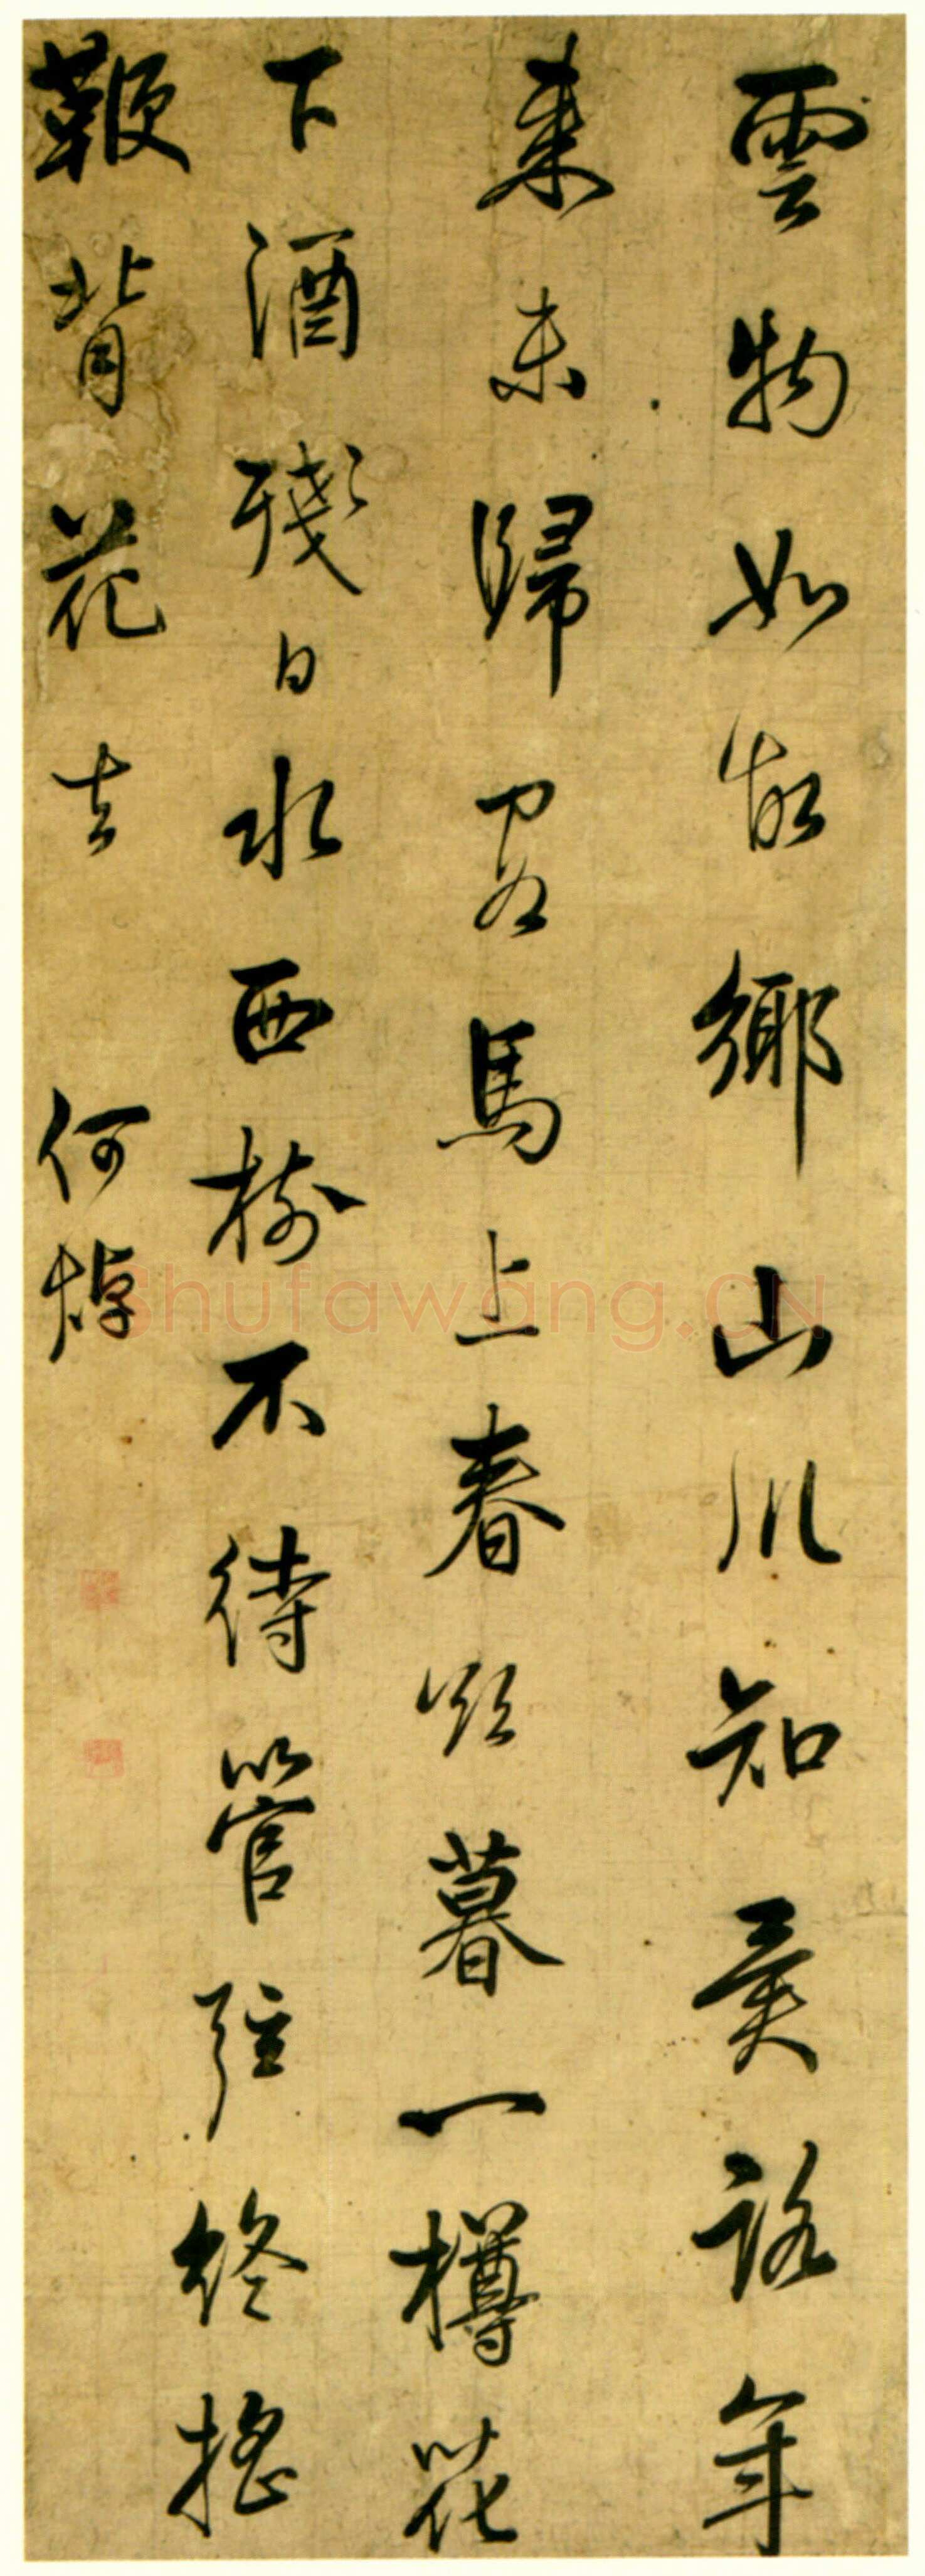 雲物如故鄉山川知異路年
來未歸客馬上春欲暮一樽花
下酒殘日水西樹不待管弦終搖
鞭背花去 何焯
Shufawang.CN